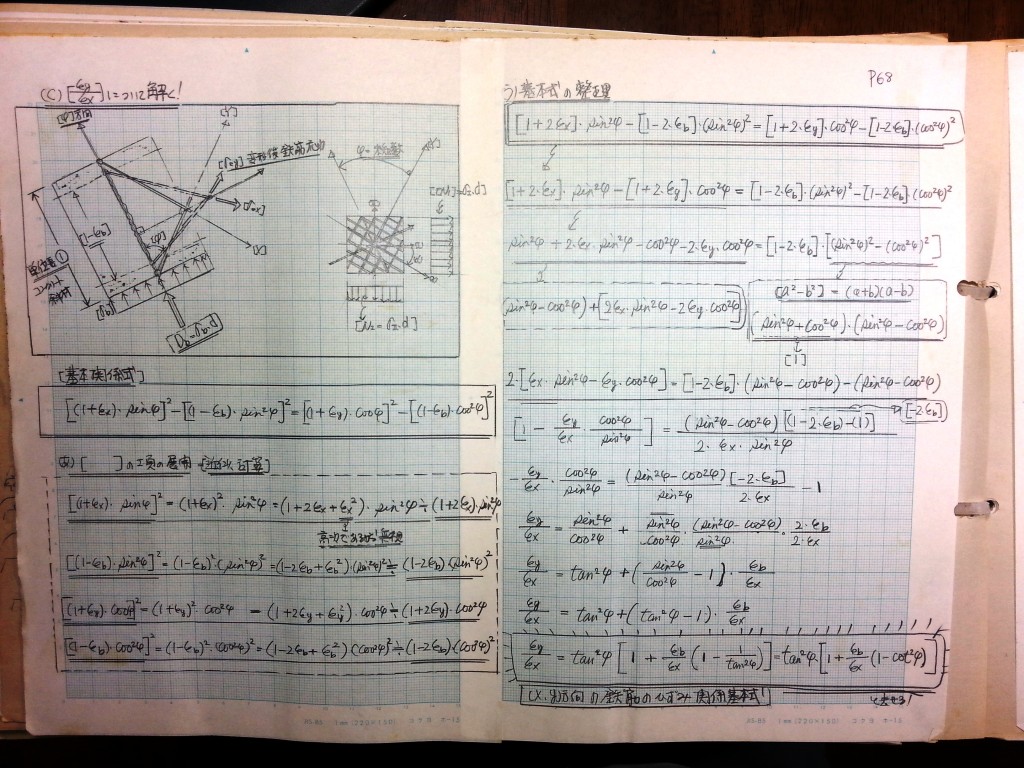 (C) [εy/εx] について解く!
[φ]方向
[Y]
[1-εb]
単位量①
コンクリート
[φ]
[X]
[Db=σb・d]
[N2=σ2・d]
[基本関係式]
[(1+εx)・sinφ]²-[(1-εb)・sin²φ]²=[(1+εy)・cosφ]²-[(1-εb)・cos²φ]²
あ) [ ]の2項の展開
[(1+εx)・sinφ]²=(1+εx)²・sin²φ=(1+2εx+εx²)・sin²φ≒(1+2εx)・sin²φ
高次であるから無視
[(1-εb)・sin²φ]²=(1-εb)²・(sin²φ)²=(1-2εb+εb²)・(sin²φ)²≒(1-2εb)・(sin²φ)²
[(1+εy)・cosφ]²=(1+εy)²・cos²φ=(1+2εy+εy²)・cos²φ≒(1+2εy)・cos²φ
[(1-εb)・cos²φ]²=(1-εb)²・(cos²φ)²=(1-2εb+εb²)・(cos²φ)²≒(1-2εb)・(cos²φ)²
JIS-B5 1mm(220×150) コクヨ ホ-15
P68
う) 基本式の整理
[1+2・εx]・sin²φ-[1-2・εb]・(sin²φ)²=[1+2・εy]・cos²φ-[1-2・εb]・(cos²φ)²
[1+2・εx]・sin²φ-[1+2・εy]・cos²φ=[1-2・εb]・(sin²φ)²-[1-2・εb]・(cos²φ)²
sin²φ+2・εx・sin²φ-cos²φ-2・εy・cos²φ=[1-2・εb]・[(sin²φ)²-(cos²φ)²]
[a²-b²]=(a+b)(a-b)
(sin²φ-cos²φ)+[2εx・sin²φ-2εy・cos²φ]
(sin²φ+cos²φ)・(sin²φ-cos²φ)
[1]
2・[εx・sin²φ-εy・cos²φ]=[1-2・εb]・(sin²φ-cos²φ)-(sin²φ-cos²φ)
[-2εb]
[1-εy/εx・cos²φ/sin²φ]=(sin²φ-cos²φ)[(1-2・εb)-(1)]/2・εx・sin²φ
-εy/εx・cos²φ/sin²φ=(sin²φ-cos²φ)/sin²φ・[-2・εb]/2・εx-1
εy/εx=sin²φ/cos²φ+sin²φ/cos²φ・(sin²φ-cos²φ)/sin²φ・2・εb/2・εx
εy/εx=tan²φ+(sin²φ/cos²φ-1)・εb/εx
εy/εx=tan²φ+(tan²φ-1)・εb/εx
εy/εx=tan²φ[1+εb/εx(1-1/tan²φ)]=tan²φ・[1+εb/εx・(1-cot²φ)]
[X・Y]方向の鉄筋のひずみ関係基本式!
JIS-B5 1mm(220×150) コクヨ ホ-15